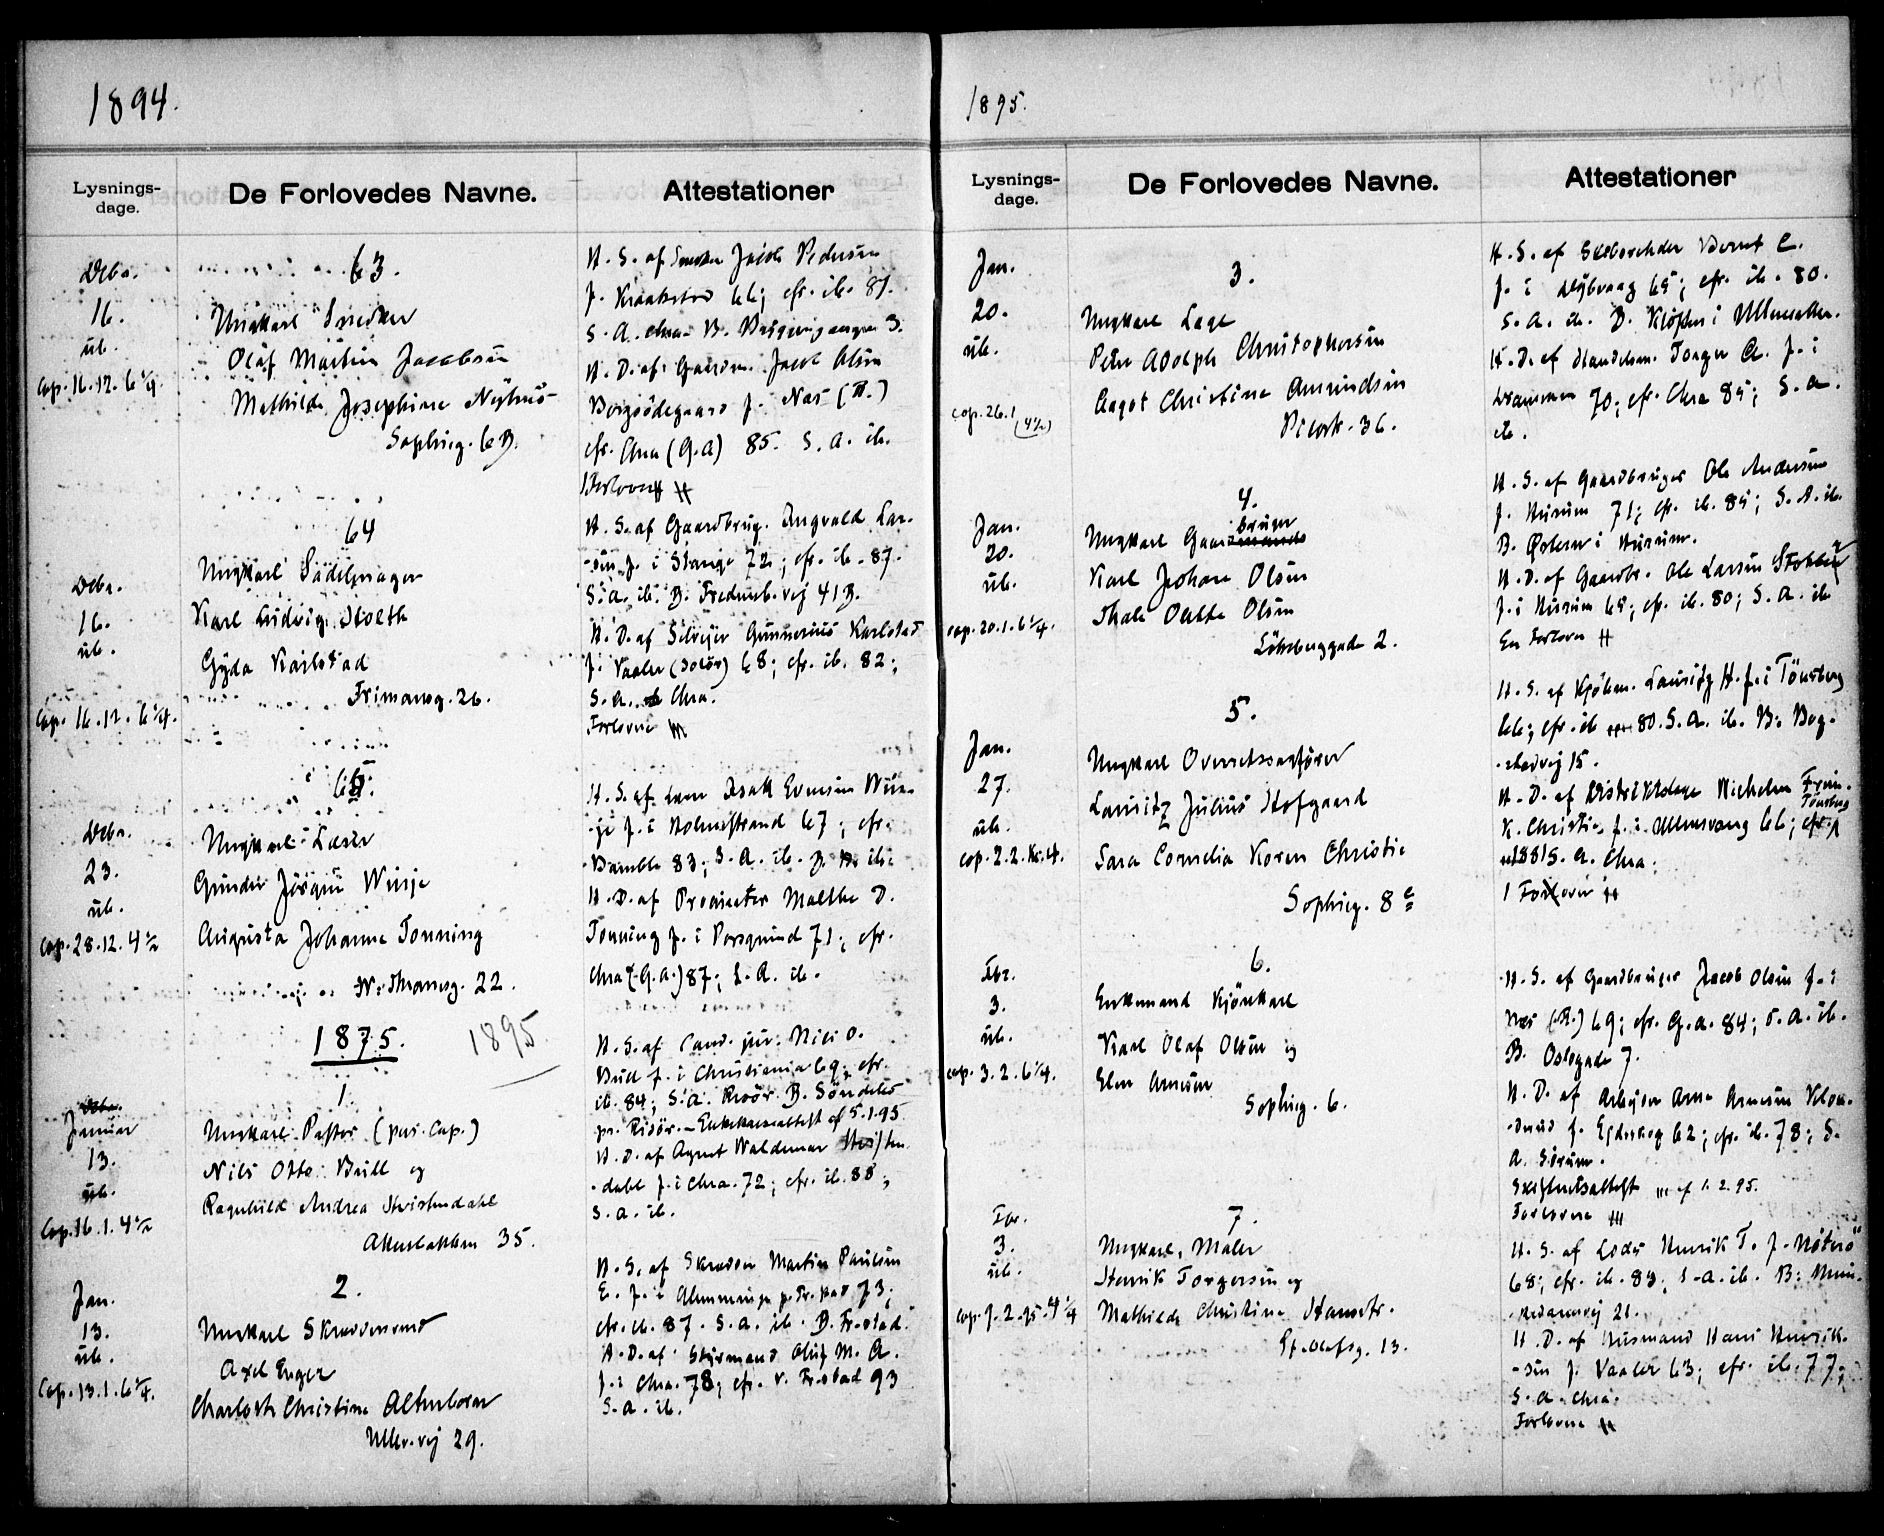 1894.
Lysnings-
dage.
De Forlovedes Navne.
Attestationer
Debr.
16.
ub.
cop. 16.12. 6 1/4.
63.
Ungkarl Snedker
Olaf Martin Jacobsen
Mathilde Josephine Nyhus
Sophieg. 6 B.
H. S. af Snedker Jacob Pedersen
f. Kraakstad 66; cfr. ib. 81.
S. A. Chra. B. 3.
H. D. af Gaardm. Jacob Olsen
Borgsödegaard f. Næs (R.)
cfr. Chra (G.A) 85. S. A. ib.
Forlovere
Debr.
16.
ub.
cop. 16.12. 6 1/4.
64
Ungkarl Sadelmager
Karl Ludvig Holth
Gyda Karlstad
Frimansg. 26.
H. S. af Gaardbrug. Ingvald Lar-
sen f. i Stange 72; cfr. ib. 87.
S. A. ib. B. Fredensb.vej 41 B.
H. D. af Selvejer Gunnerius Karlstad
f. Vaaler (Solör) 68; cfr. ib. 82;
S. A. Chra.
Forlovere
Debr.
23.
ub.
cop. 28.12. 4 1/2
65.
Ungkarl Læser
Gunder Jörgen Winje
Augusta Johanne Tonning
Thransg. 22.
H. S. af Isak Evensen Win-
je f. i Holmestrand 67; cfr.
Bamble 83; S. A. ib. B. ib.
H. D. af Proprietær Malthe D.
Tonning f. i Porsgrund 71; cfr.
Chra (G.A.) 87; S. A. ib.
1875. 1895
Januar
13.
ub.
Cop. 16.1. 4 1/2
1.
Ungkarl Pastor (pers. Cap.)
Nils Otto Bull og
Ragnhild Andrea Hvistendahl
Akersbakken 35.
H. S. af Cand. jur. Nils O.
Bull f. i Christiania 69; cfr.
ib. 84; S. A. Risör. B. Söndeled
pr. Risör. - af 5.1.95
H. D. af Agent Waldemar Hvisten
dahl f. i Chra. 72; cfr. ib. 88;
S. A. ib.
Jan.
13.
ub.
Cop. 13.1. 6 1/4.
2.
Ungkarl Skræddersvend
Axel Enger
Charlotte Christine Altenborn
Ullev.vej 29.
H. S. af Skrædder Martin Paulsen
E. f. i p. Fr.stad 73;
cfr. ib. 87. S. A. ib. B. Fr.stad.
H. D. af Styrmand Oluf M. A.
f. i Chra. 78; cfr. v. Fr.stad 93
S. A. ib.
1895.
Lysnings-
dage.
De Forlovedes Navne.
Attestationer
Jan.
20.
ub.
cop. 26.1 (4 1/2)
3.
Ungkarl Læge
Peter Adolph Christophersen
Aagot Christine Amundsen
Pilestr. 36.
H. S. af Skibsreder Bernt C.
f. i Dybvaag 65; cfr. ib. 80.
S. A. ib. B. Kløften i Ullensaker.
H. D. af Handelsm. Torger A. f. i
Drammen 70; cfr. Chra 85; S. A.
ib.
Jan.
20.
ub.
cop. 20.1. 6 1/4.
4.
bruger
Ungkarl Gaardmands
Karl Johan Olsen
Thale Oline Olsen
Lökkeberggade 2.
H. S. af Gaardbruger Ole Andersen
f. Hurum 71; cfr. ib. 85; S. A. ib.
B. Östern i Hurum.
H. D. af Gaardbr. Ole Larsen
f. i Hurum 65; cfr. ib. 80; S. A. ib.
En Forlover
Jan.
27.
ub.
cop. 2.2. Kl. 4.
5.
Ungkarl Overretssagförer
Lauritz Julius Hofgaard
Sara Cornelia Koren Christie
Sophieg. 8 c
H. S. af Kjöbm. Lauritz H. f. i Tönsberg
66; cfr. ib 80. S. A. ib. B. Bog-
stadvej 15.
H. D. af Distriktslæge Wilhelm Frim.
K. Christie f. i Ullensvang 66; cfr. Tönsberg
1881 S. A. Chra.
1 Forlover
Fbr.
3.
ub.
cop. 3.2. 6 1/4.
6.
Enkemand Kjörekarl
Karl Olaf Olsen og
Elen Arnesen
Sophieg. 6.
H. S. af Gaardbruger Jacob Olsen f. i
Næs (R.) 69; cfr. G.A. 84; S. A. ib.
B. Oslogade 7.
H. D. af Arbejder Arne Arnesen Klok-
f. Eidskog 62; cfr. ib. 78; S.
A. Sörum.
Skifteretsattest af 1.2.95.
Forlovere
Fbr.
3.
ub.
cop. 7.2.95. 4 1/4
7.
Ungkarl, Maler
Henrik Torgersen og
Mathilde Christine Hansdtr.
St. Olafsg. 13.
H. S. af Lods Henrik T. f. Nöterö
68; cfr. ib. 83; S. A. ib. B: Mun-
kedamsvej 21.
H. D. af Husmand Hans Henrik-
sen f. Vaaler 63; cfr. ib. 77;
S. A. Chra.
Forlovere